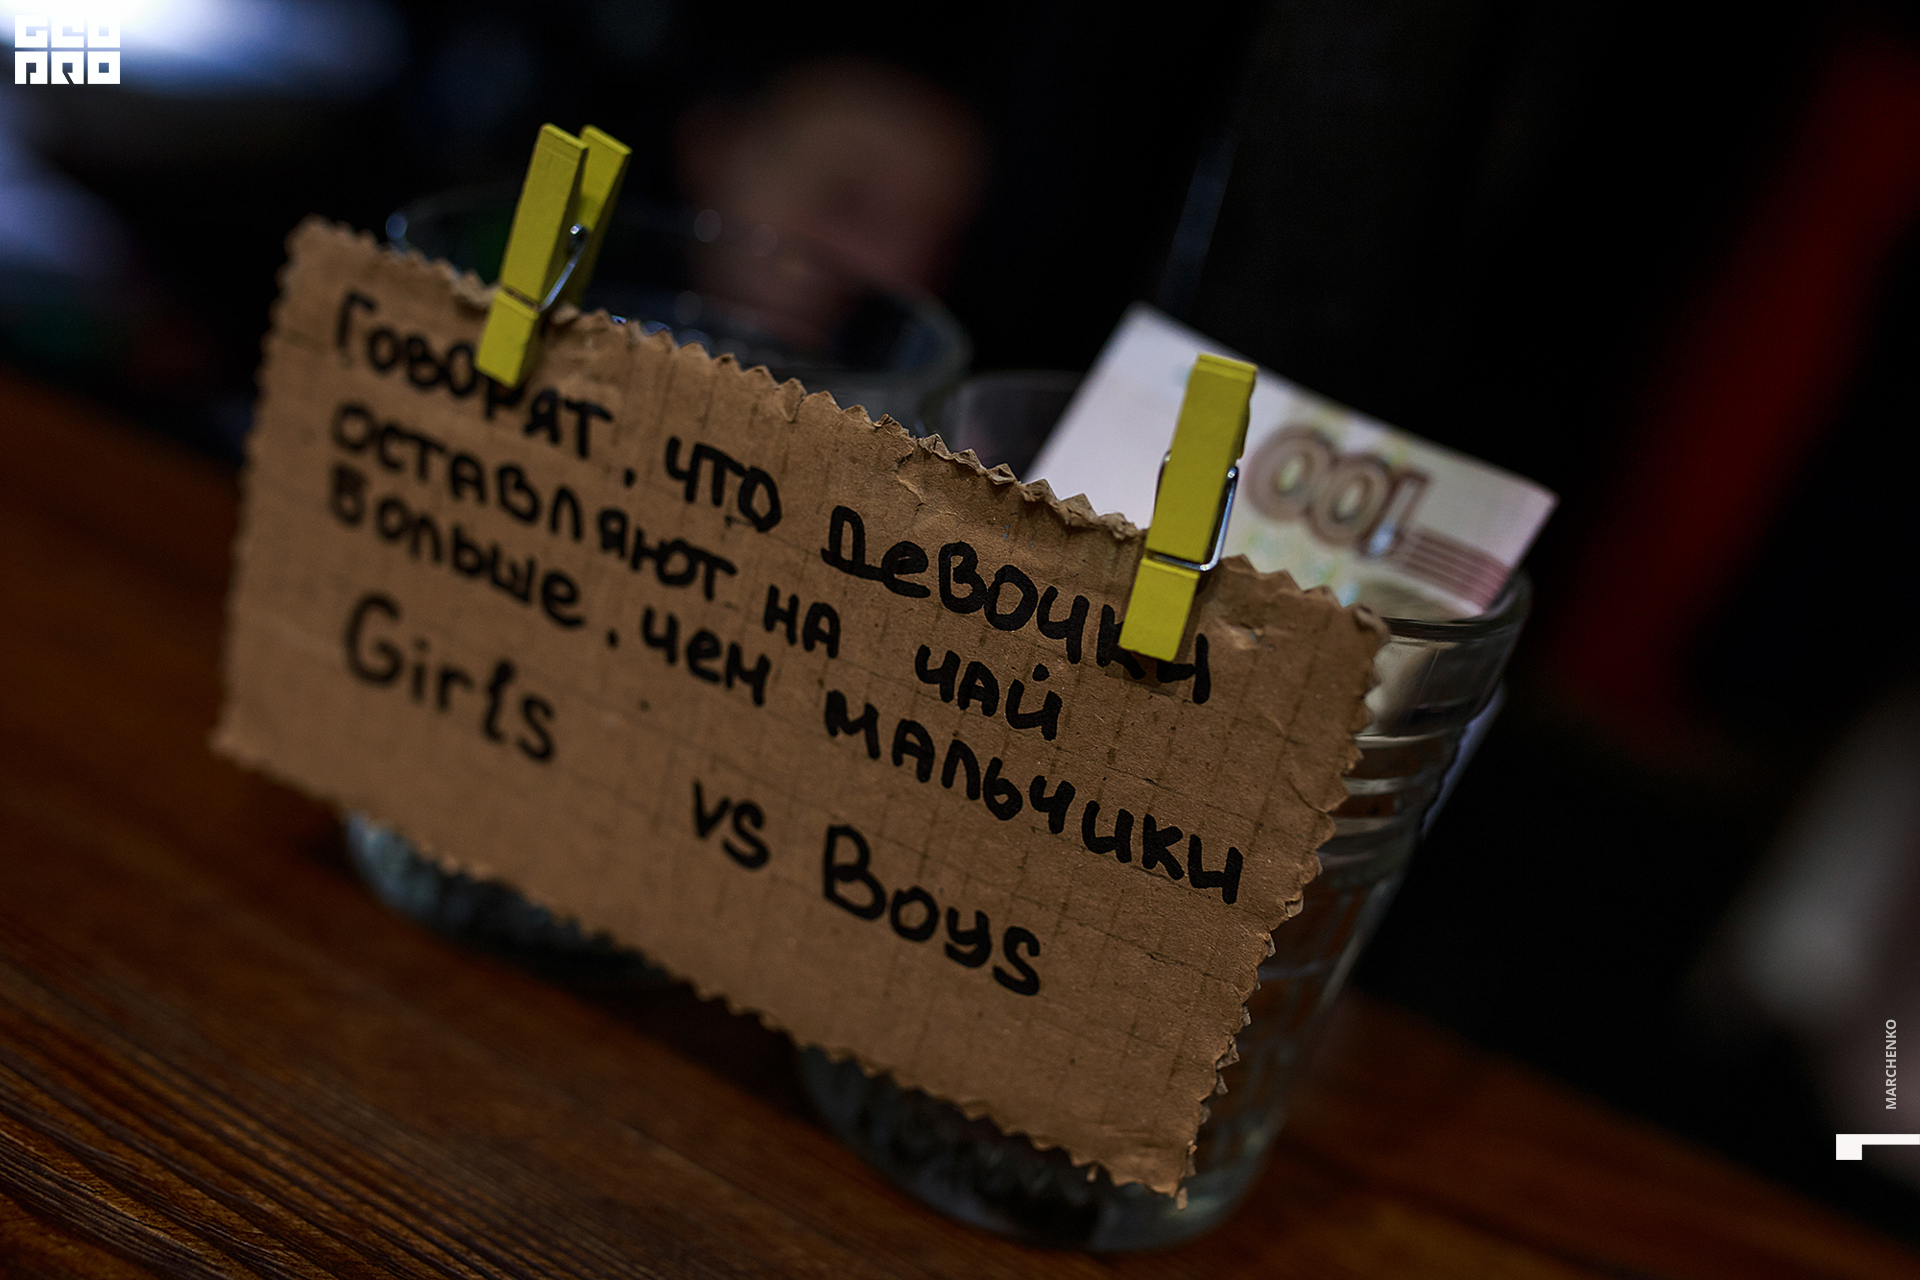 GEO
PRO
Говорят, что девочки
оставляют на чай
больше, чем мальчики
Girls vs Boys
100
MARCHENKO